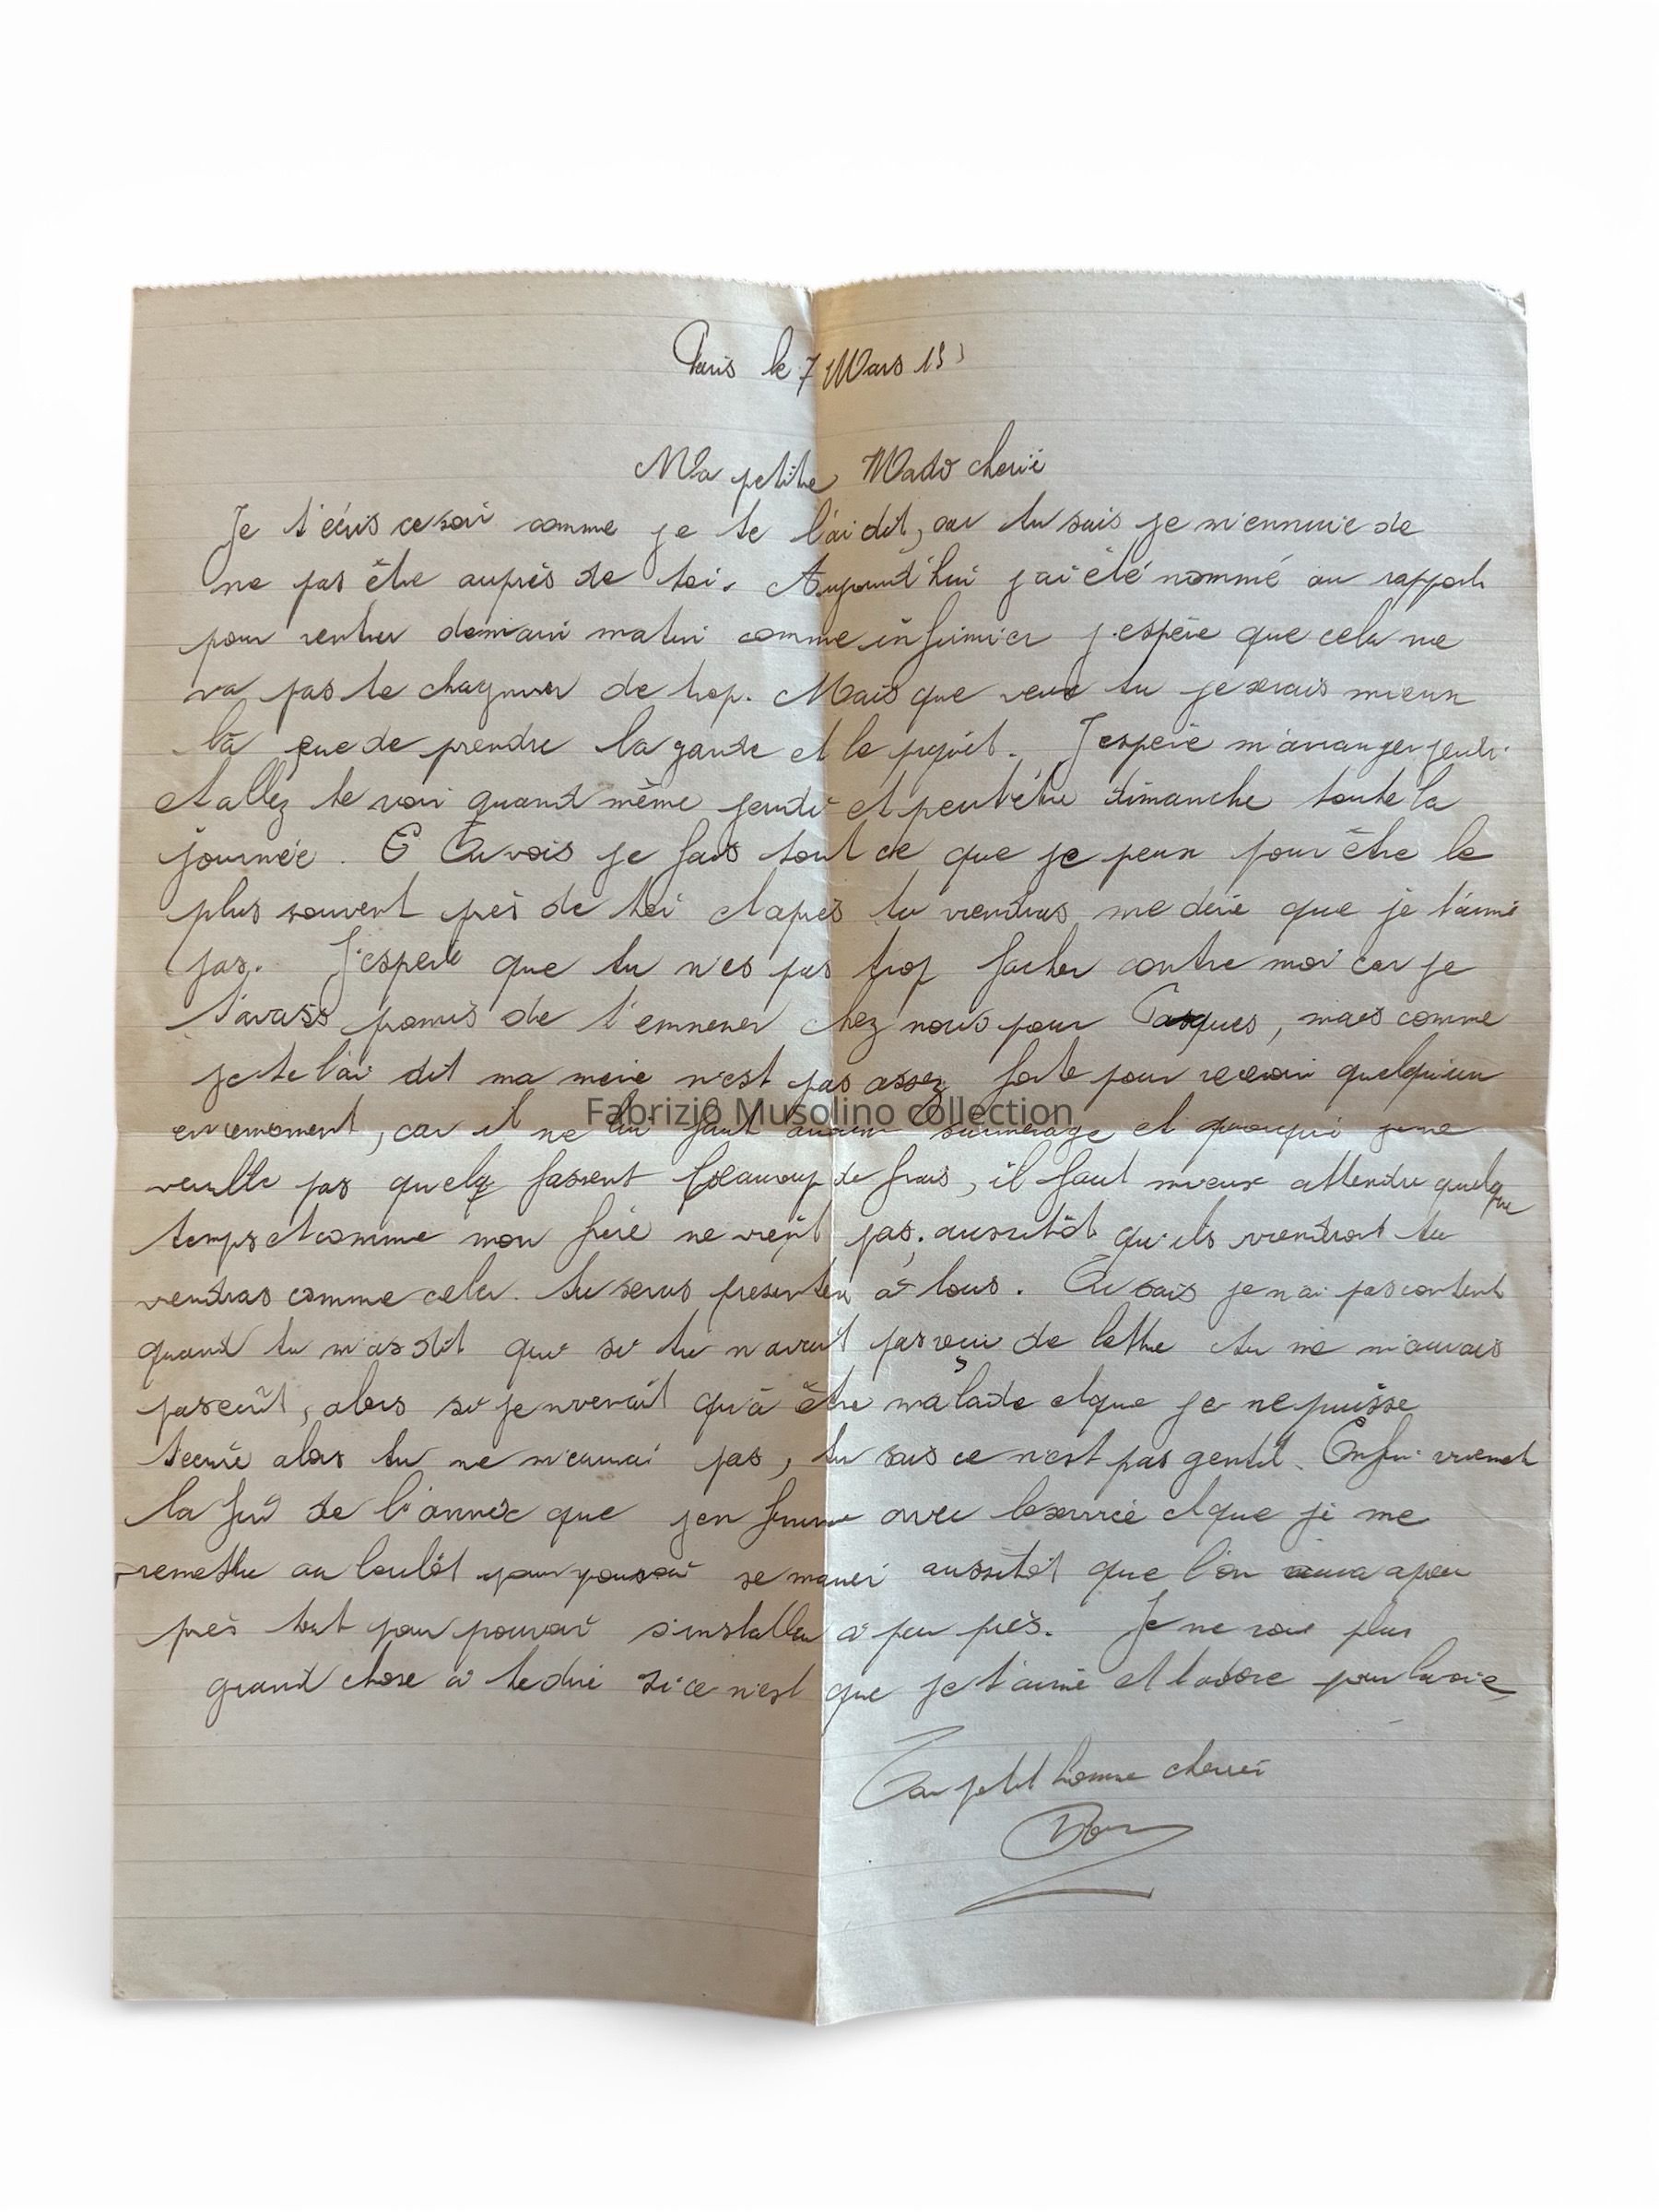 Paris le 7 Mars 19
Ma petite Mado cherie
Je t'écris ce soir comme je te l'ai dit, car tu sais je m'ennuie de
ne pas être auprès de toi. Aujourd'hui j'ai été nommé au rapport
pour rentrer demain matin comme infirmier j'espère que cela ne
va pas te chagriner de trop. Mais que veux tu je serais mieux
là que de prendre la garde et le piquet. J'espère m'arranger jeudi
et allez te voir quand même jeudi et peut être dimanche toute la
journée. Tu vois je fais tout ce que je peux pour être le
plus souvent près de toi et après tu viendras me dire que je t'aime
pas. J'espere que tu n'es pas trop facher contre moi car je
t'avais promis de t'emmener chez nous pour Pasques, mais comme
je te l'ai dit ma mère n'est pas assez forte pour recevoir quelqu'un
en ce moment, car il ne lui faut aucun surmenage et je ne
veulle pas quelq fassent beaucoup de frais, il faut mieux attendre quelque
temps et comme mon frère ne vient pas, aussitôt qu'ils viendront tu
viendras comme cela tu seras presenter à tous. Tu sais je n'ai pas content
quand tu m'as dit que si tu n'avait pas reçu de lettre tu ne m'aurais
pas ecrit, alors si je n venait qu'à être malade et que je ne puisse
t'ecrire alors tu ne m' pas, tu sais ce n'est pas gentil. Enfin vivement
la fin de l'année que j'en finisse avec le service et que je me
remettre au boulôt pour pouvoir se marier aussitôt que l'on aura a peu
près tout pour pouvoir s'installer à peu près. Je ne vois plus
grand chose à te dire si ce n'est que je t'aime et t'adore pour la vie
Ton petit homme cherei
Fabrizio Musolino collection